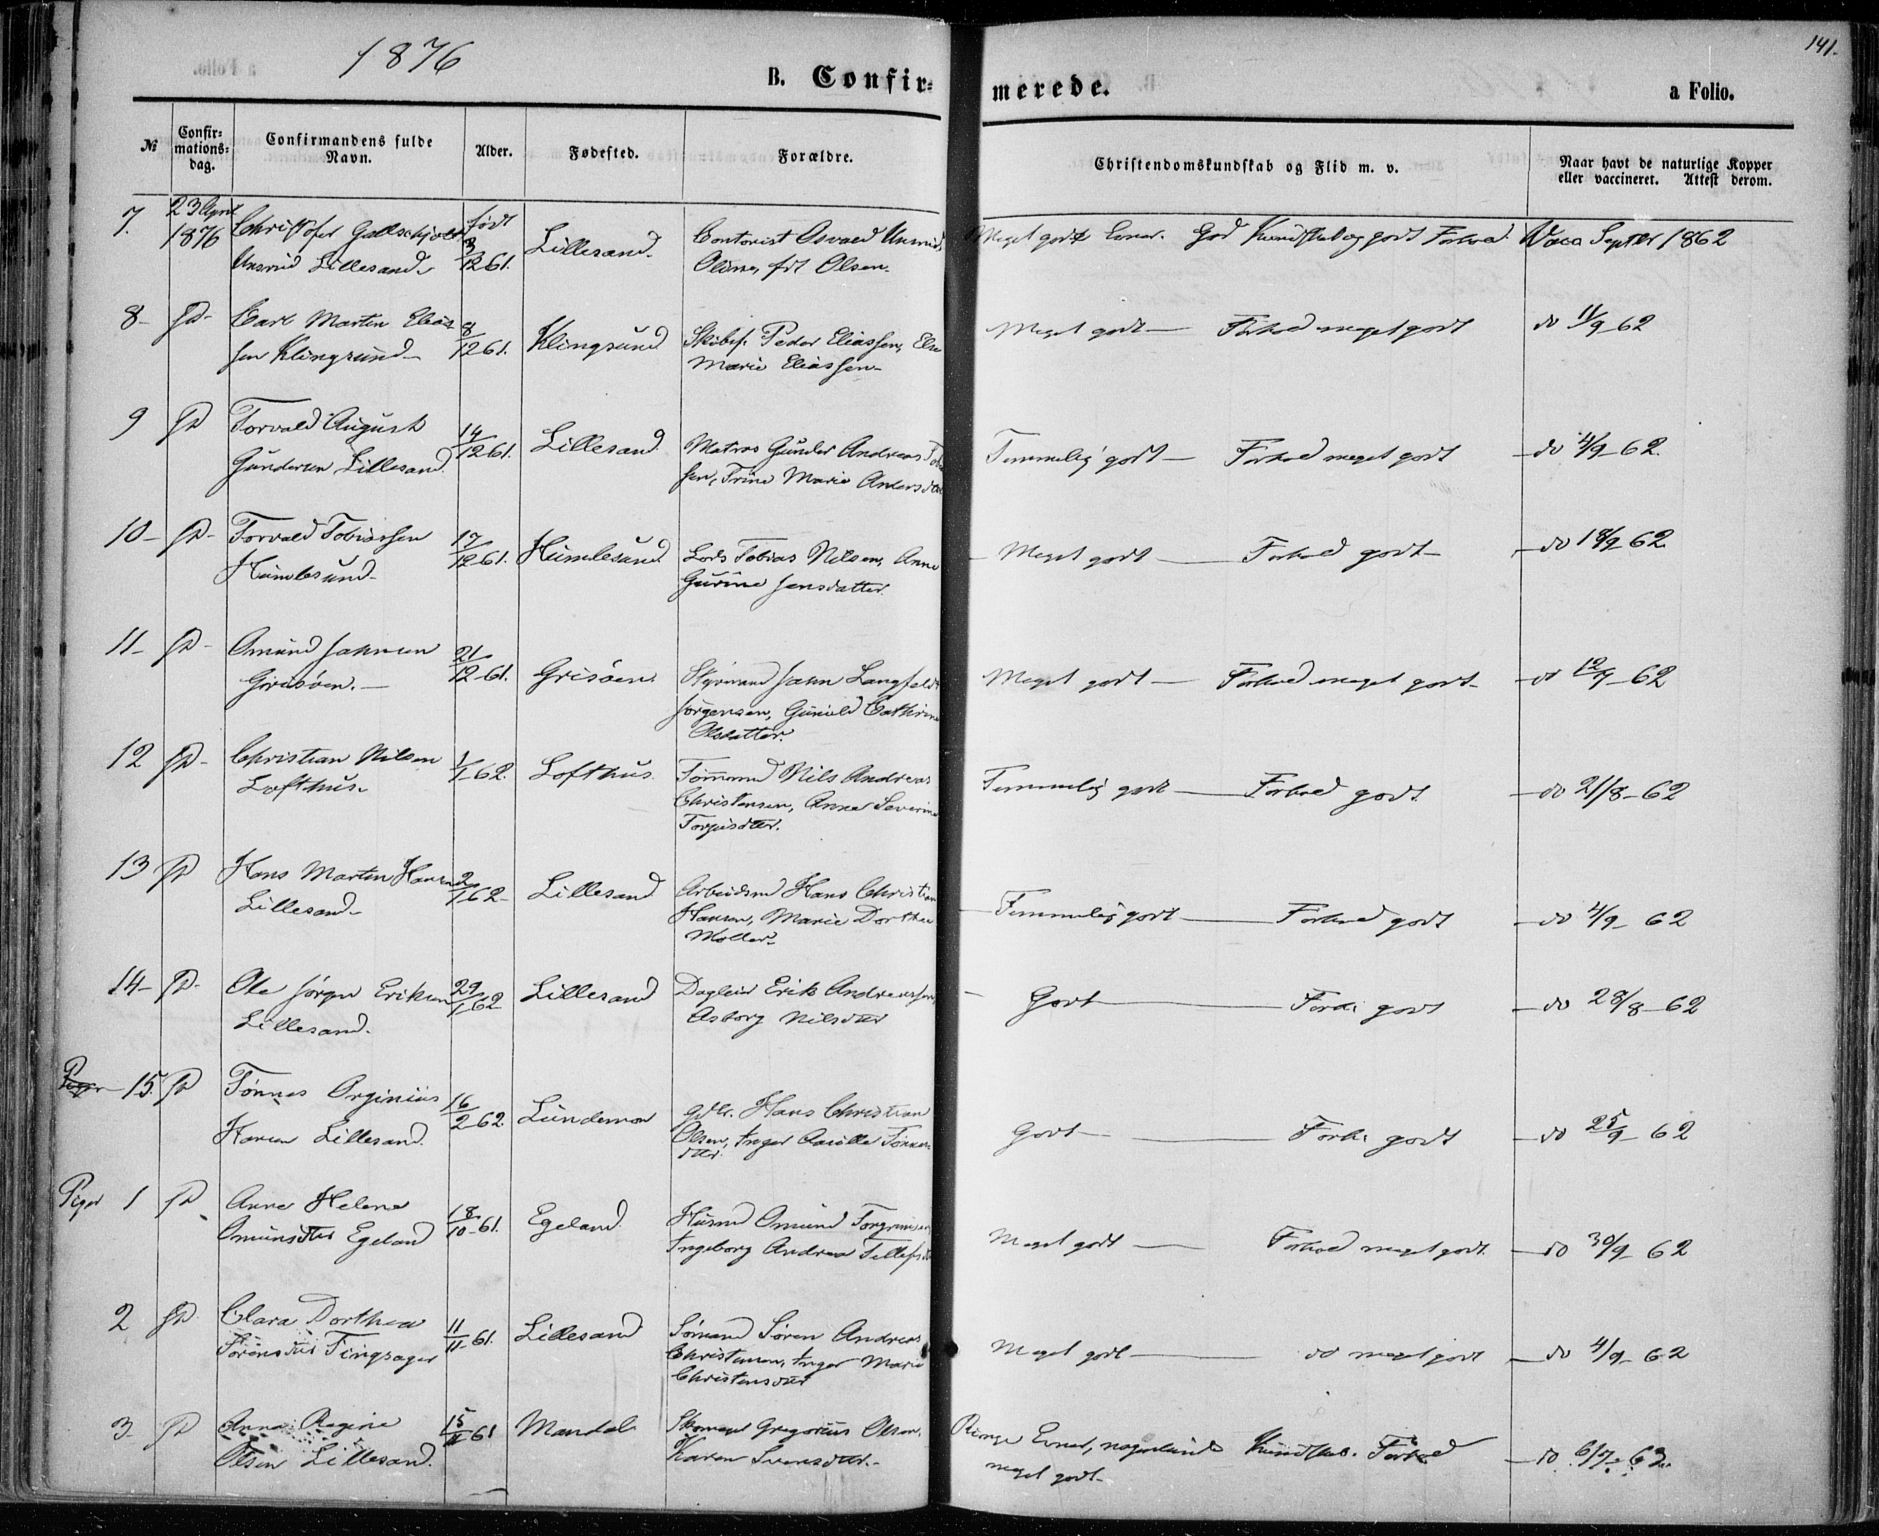 1876
141.
B. Confir-
merede.
a Folio.
№
Confir-
mations-
dag.
Confirmandens fulde
Navn.
Alder.
Fødested.
Forældre.
Christendomskundskab og Flid m. v.
Naar havt de naturlige Kopper
eller vaccineret. Attest derom.
7. 23 April
1876 Christofer
Lillesand
født
3/12 61. Lillesand
Contorist Osvald
Olsen.
Meget gode Evner. God Kundskab og godt Forhold. Vacc Septbr 1862
8 Carl Martin Elias
sen Klingsund
8/12 61. Klingsund
Skibsf. Peder Eliassen, Else
Marie Eliassen
Meget godt Forhold meget godt do 11/9 62
9 Torvald August
Gundersen Lillesand
14/12 61. Lillesand
Matros Gunder Andreas
sen, Trine Marie Andersdtr
Temmelig godt Forhold meget godt do 4/9 62.
10 Torvald Tobiassen
Humlesund
17/12 61. Humlesund
Lods Tobias Nilsen, Anne
Gurine Jensdatter
Meget godt Forhold godt do 18/9 62
11 Amund Jahnsen
Grisøen.
21/12 61. Grisøen
Styrmand Jahn Langfeldt
Jørgensen, Gunild Cathrine
Olsdatter.
Meget godt Forhold meget godt do 12/9 62
12 Christian Nilsen
Lofthus
1/1 62. Lofthus
Tømmermd Nils Andreas
Christensen, Anne Severine
Torjusdtr.
Temmelig godt Forhold godt do 21/8 62
13 Hans Martin Hansen
Lillesand
2/1 62 Lillesand
Arbeidsmd Hans Christian
Hansen, Marie Dorthea
Møller
Temmelig godt Forhold godt do 4/9 62
14 Ole Jørgen Eriksen
Lillesand.
29/1 62 Lillesand
Dagleier Erik Andreassen
Asborg Nilsdtr
Godt Forh. godt do 28/8 62
Piger 15. Tønnes Orginius
Hansen Lillesand.
16/2 62 Lundemo
Hans Christian
Olsen, Inger Tønnes
dtr.
Godt Forh. godt do 25/9 62
Piger 1 Anne Helene
Amundsdtr Egeland
18/10 61. Egeland
Husmd Amund Torgrimsen
Ingeborg Andrea Tellefsdtr
Meget godt Forhold meget godt do 30/9 62
2 Clara Dorthea
Sørensdtr Tingsager
11/11 61. Lillesand
Sømand Søren Andreas
Christensen, Inger Marie
Christensdtr
Meget godt do meget godt do 4/9 62
3. Anna Regine
Olsen Lillesand.
15/11 61 Mandal
Skomager Gregorius Olsen,
Karen Svensdtr.
Ringe Evner, nogenlunde Kundskab. Forhold
meget godt
do 6/7 62